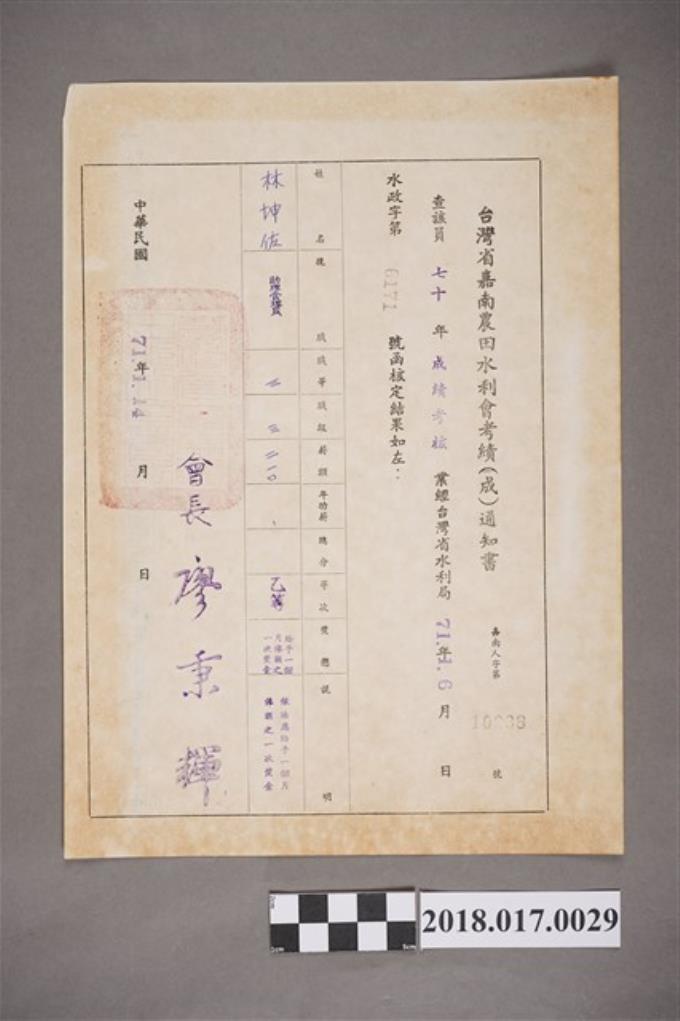 台灣省嘉南農田水利會考績(成)通知書
嘉南人字第 號
查該員 七十 年 成績考核 業經台灣省水利局 71.1.6 年 月 日
水政字第 6171 號函核定結果如左：
姓 名 職 職 等 職 級 薪 額 年功薪 總 分 等 次 獎 懲 說 明
林坤佐 二 三 二一〇 乙等 給予一個月俸額之一次獎金 依法應給予一個月俸額之一次獎金
會長 廖秉輝
中華民國 71.1.14 年 月 日
2018.017.0029